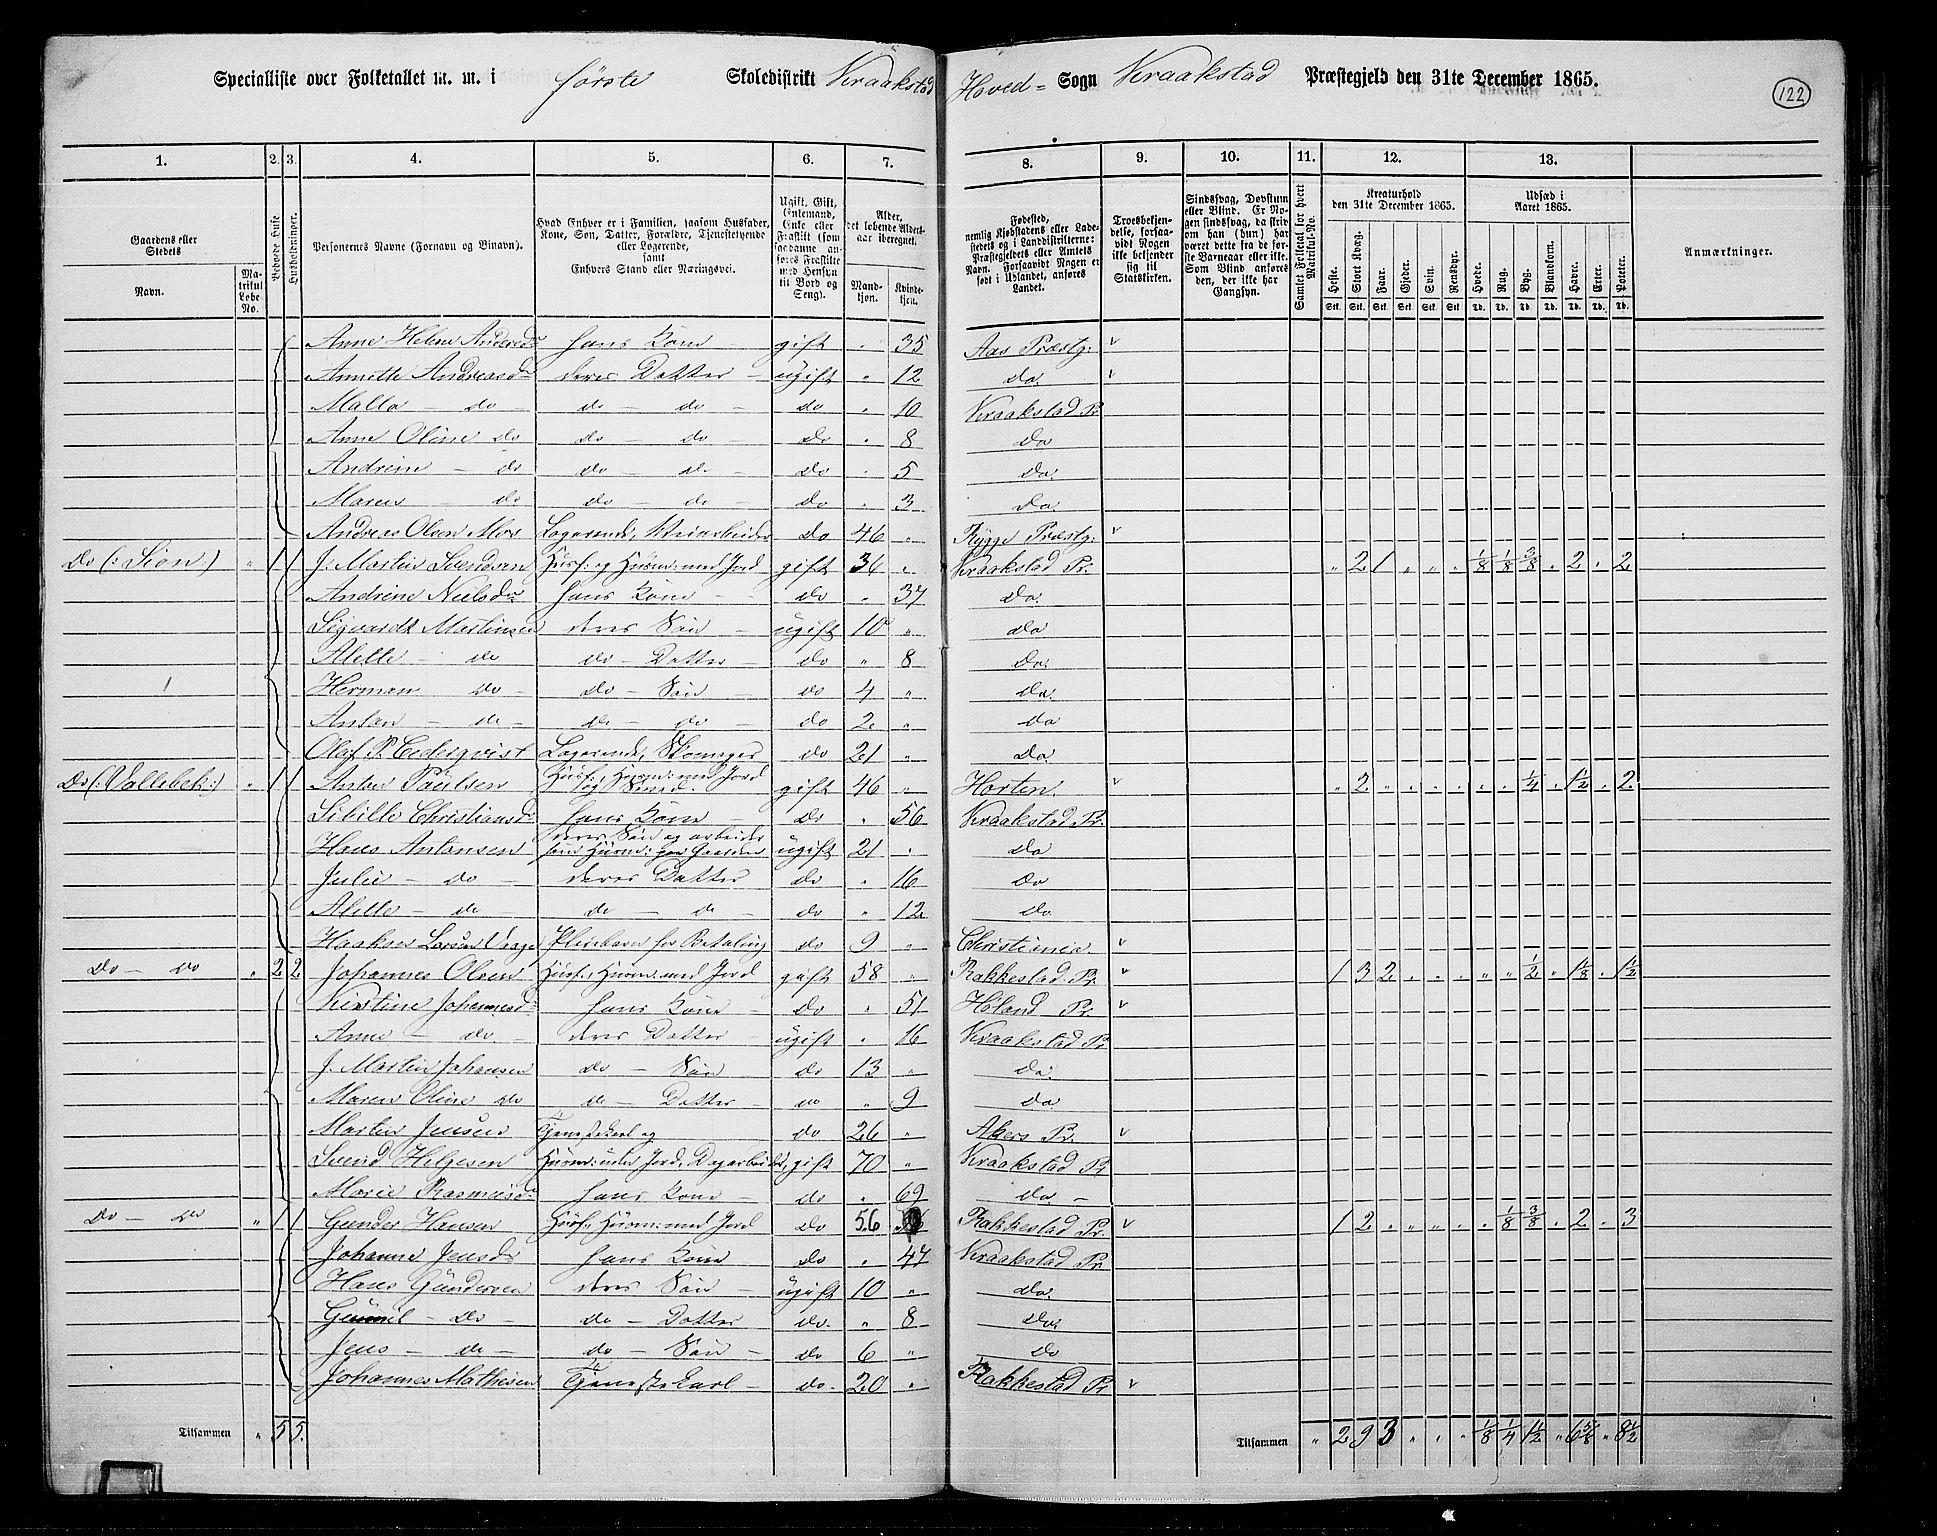 Specialliste over Folketallet m. m. i første Skoledistrikt Kraakstad Hoved= Sogn Kraakstad Præstegjeld den 31te December 1865.
122
1. 2. 3. 4. 5. 6. 7. 8. 9. 10. 11. 12. 13.
Gaardens eller Stedets
Navn.
Matrikul Løbe-No.
Beboede Huse
Husholdninger.
Personernes Navne (Fornavn og Binavn).
Hvad Enhver er i Familien, saasom Husfader, Kone, Søn, Datter, Forældre, Tjenestetyende eller Logerende, samt Enhvers Stand eller Næringsvei.
Ugift, Gift, Enkemand, Enke eller Fraskilt (som saadanne anføres Fraskilte med Hensyn til Bord og Seng).
Alder, det løbende Aldersaar iberegnet.
Mandkjøn. Kvindekjøn.
Fødested, nemlig Kjøbstadens eller Ladestedets og i Landdistrikterne: Præstegjeldets eller Amtets Navn. Forsaavidt Nogen er født i Udlandet, anføres Landet.
Troesbekjendelse, forsaavidt Nogen ikke bekjender sig til Statskirken.
Sindssvag, Døvstum eller Blind. Er Nogen sindssvag, da skrives om han (hun) har været dette fra de første Barneaar eller ikke. Som Blind anføres den, der ikke har Gangsyn.
Samlet Folketal for hvert Matrikul-No.
Kreaturhold den 31te December 1865.
Heste. Stort Kvæg. Faar. Gjeder. Svin. Rensdyr.
Stk. Stk. Stk. Stk. Stk. Stk.
Udsæd i Aaret 1865.
Hvede. Rug. Byg. Blandkorn. Havre. Erter. Poteter.
Td. Td. Td. Td. Td. Td. Td.
Anmærkninger.
Anne Helene Andersdr hans Kone gift " 35 Aas Præstg:
Annette Andreasdr deres Datter ugift " 12 do.
do do do do " 10 Kraakstad Pr.
Anne Oline do do do do " 8 do
Andrine do do do do " 5 do.
Maren do do do do " 3 do
Andreas Olsen Mos Logerende, do 46 " Rygge Præstg:
Do (: Sion) " 1 1 J. Martin Svendsen Husf: og Husm: med Jord gift 36 " Kraakstad Pr. " 2 1 " " " 1/8 1/8 3/8 " 2 " 2
Andrine Nielsdr hans Kone do " 37 do.
Sigvardt Martinsen deres Søn ugift 10 " do
Alette do do Datter do " 8 do.
Herman do do Søn do 4 " do.
Anton do do do do 2 " do
Olaf P. Cederqvist Logerende, Skomager do 21 " do
Do (: Vallebek:) " 1 1 Anton Paulsen Husf:, Husm: med Jord gift 46 " Horten. " 2 " " " " " " 1/4 " 1 1/2 " 2
Sibille Christiansdr hans Kone do " 56 Kraakstad Pr.
Hans Antonsen deres Søn og arbeider som Husm: paa Gaarden ugift 21 " do
Julie do deres Datter do " 16 do
Alette do do do do " 12 do
Pleiebarn for Betaling do 9 " Christiania.
Do do " 2 2 Johannes Olsen Husf:, Husm: med Jord gift 58 " Rakkestad Pr. 1 3 2 " " " " " 1/2 " 1 1/8 " 1 1/2
Kirstine Johannesdr hans Kone do " 51 Høland Pr.
Anne do deres Datter ugift " 16 Kraakstad Pr
J. Martin Johansen do Søn do 13 " do.
Maren Oline do do Datter do " 9 do
Martin Jensen Tjenestekarl og do 26 " Akers Pr.
Svend Helgesen Husm: uden Jord, Dagarbeider, gift 70 " Kraakstad Pr
Marie Rasmusdr hans Kone do " 69 do
Do do " 1 1 Gunder Hansen Husf:, Husm: med Jord do 56 Rakkestad Pr. 1 2 " " " " " 1/8 3/8 " 2 " 3
Johanne Jensdr hans Kone do " 47 Kraakstad Pr
Hans Gundersen deres Søn ugift 10 " do.
do do Datter do. " 8 do.
Jens do do Søn do 6 " do
Johannes Mathisen Tjenestekarl do. 20 " Rakkestad Pr
Tilsammen " 5 5. Tilsammen " 2 9 3 " " " 1/8 1/4 1 1/2 " 6 5/8 " 8 1/2